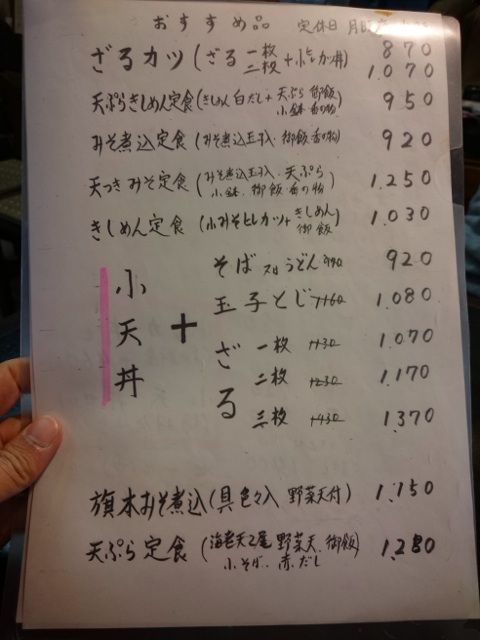 おすすめ品 定休日 月
ざるカツ(ざる 一枚 + 小ヒレカツ丼) 870
二枚 1,070
天ぷらきしめん定食(きしめん 白だし+ 天ぷら 御飯 950
小鉢 香の物)
みそ煮込定食(みそ煮込玉子入 御飯 香の物) 920
天つきみそ定食(みそ煮込玉子入 天ぷら 1,250
小鉢 御飯 香の物)
きしめん定食(小みそヒレカツ+ きしめん 1,030
御飯)
小天丼 +
そば 又は うどん 920
玉子とじ 1,080
ざる 一枚 1,070
二枚 +230 1,170
三枚 +430 1,370
旗本みそ煮込(具色々入 野菜天付) 1,150
天ぷら定食(海老天2尾 野菜天 御飯) 1,280
小そば 赤だし